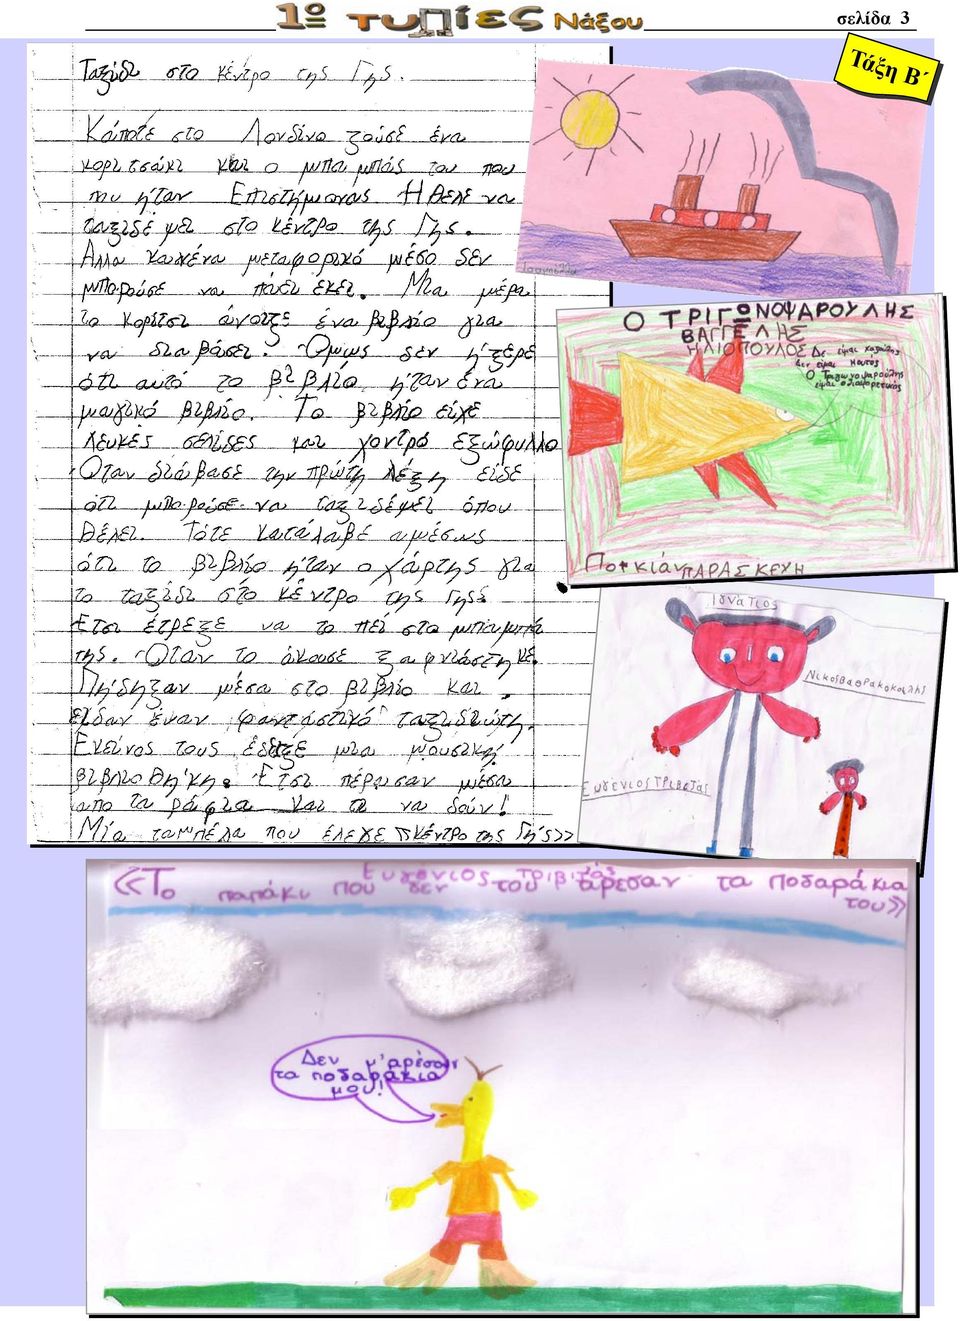 1ο ΤΥΠΙΕΣ Νάξου
σελίδα 3
Τάξη Β΄
Ταξίδι στο κέντρο της Γης.
Κάποτε στο Λονδίνο ζούσε ένα
κοριτσάκι και ο μπαμπάς του που
που ήταν Επιστήμονας. Ηθελε να
ταξιδέψει στο κέντρο της Γης.
Αλλα κανένα μεταφορικό μέσο δεν
μπορούσε να πάει εκεί. Μια μέρα
το κορίτσι άνοιξε ένα βιβλίο για
να διαβάσει. Όμως δεν ήξερε
ότι αυτό το βιβλίο ήταν ένα
μαγικό βιβλίο. Το βιβλίο είχε
λευκές σελίδες και χοντρό εξώφυλλο
Όταν διάβασε την πρώτη λέξη είδε
ότι μπορούσε να ταξιδέψει όπου
θέλει. Τότε κατάλαβε αμέσως
ότι το βιβλίο ήταν ο χάρτης για
το ταξίδι στο κέντρο της Γης
Ετσι έτρεξε να το πεί στο μπαμπά
της. Όταν το άκουσε ξαφνιάστηκε.
Πήδηξαν μέσα στο βιβλίο και
είδαν έναν φανταστικό ταξιδιώτη.
Εκείνος τους έδειξε μια μουσική
βιβλιοθήκη. Έτσι πέρασαν μέσα
απο τα ράφια και τι να δούν!
Μία ταμπέλα που έλεγε <<κέντρο της Γής>>
Ο ΤΡΙΓΩΝΟΨΑΡΟΥΛΗΣ
ΒΑΓΓΕΛΗΣ
ΗΛΙΟΠΟΥΛΟΣ
Δε είμαι
δεν είμαι
Ο τριγωνοψαρούλης
είμαι διαφορετικός
ΠΑΡΑΣΚΕΥΗ
Ιγνάτιος
Ευγένιος Τριβιζάς
Ευγενιος Τριβιζάς
«Το παπάκι που δεν του άρεσαν τα ποδαράκια
του»
Δεν μ'αρέσουν
τα ποδαράκια
μου!